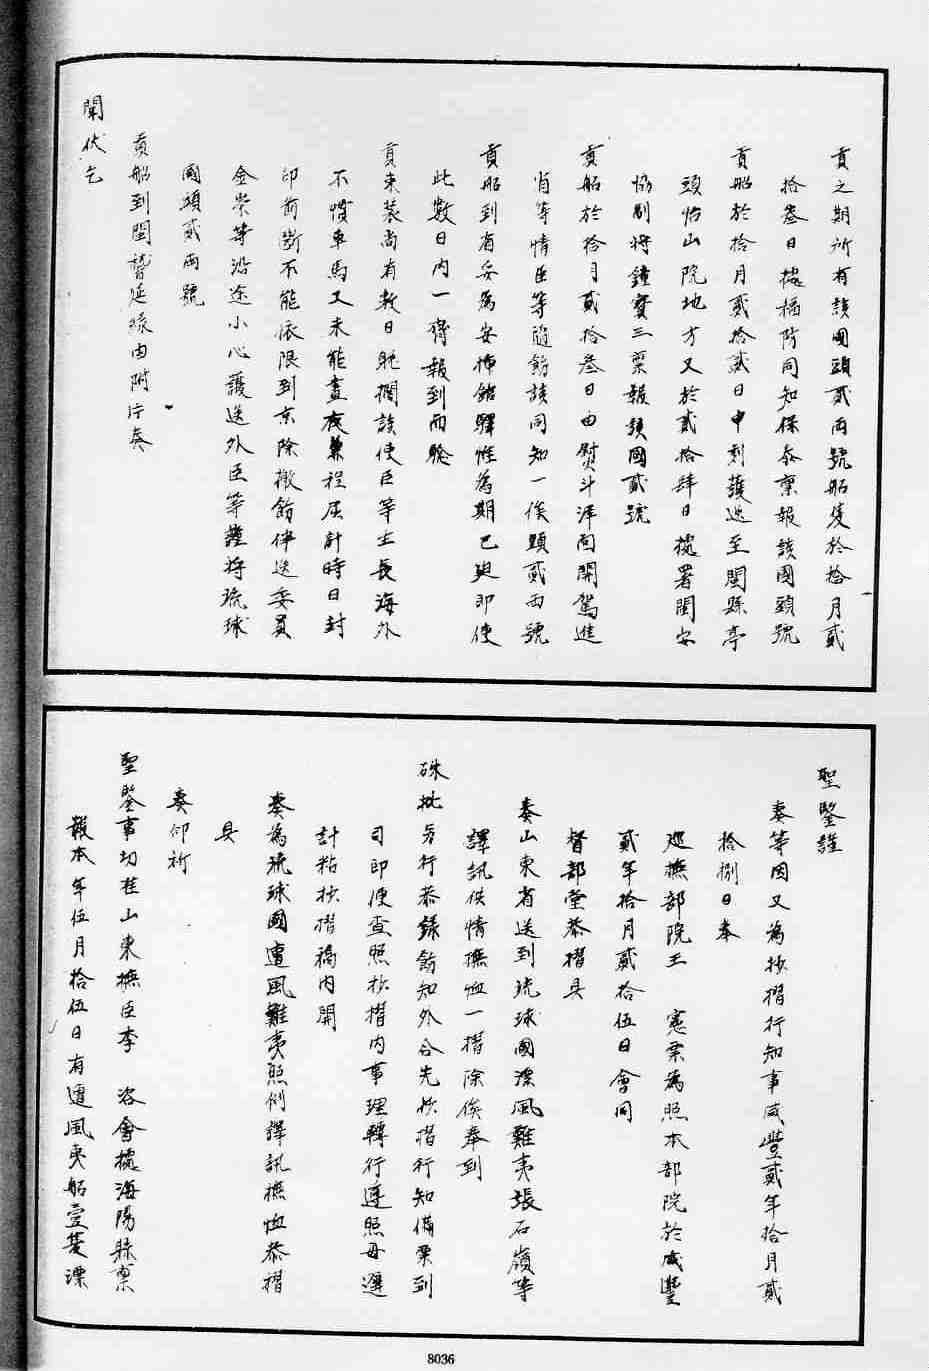 貢之期所有該國頭貳兩號船隻於拾月貳
拾叁日據福防同知保泰稟報該國頭號
貢船於拾月貳拾貳日申刻護送至閩縣亭
頭怡山院地方又於貳拾肆日據署閩安
協副將鍾寶三稟報該國貳號
貢船於拾月貳拾叁日由熨斗洋面開駕進
省等情臣等隨飭該同知一俟頭貳兩號
貢船到省妥為安插館驛惟為期已與即使
此數日內一齊報到而驗
貢束裝尚有數日耽擱該使臣等生長海外
不慣車馬又未能晝夜兼程屈計時日封
印前斷不能依限到京除檄飭伴送委員
金崇等沿途小心護送外臣等謹將琉球
國頭貳兩號
貢船到閩暫延緣由附片奏
聞伏乞
聖鑒謹
奏等因又為抄摺行知事咸豐貳年拾月貳
拾捌日奉
巡撫部院王 憲票為照本部院於咸豐
貳年拾月貳拾伍日會同
督部堂恭摺具
奏山東省送到琉球國漂風難夷張石嶺等
譯訊供情撫恤一摺除俟奉到
硃批另行恭錄飭知外合先抄摺行知備票到
司即便查照抄摺內事理轉行遵照毋違
計粘抄摺稿內開
奏為琉球國遭風難夷照例譯訊撫恤恭摺
具
奏仰祈
聖鑒事切准山東撫臣李 咨會據海陽縣稟
報本年伍月拾伍日有遭風夷船壹隻漂
8036